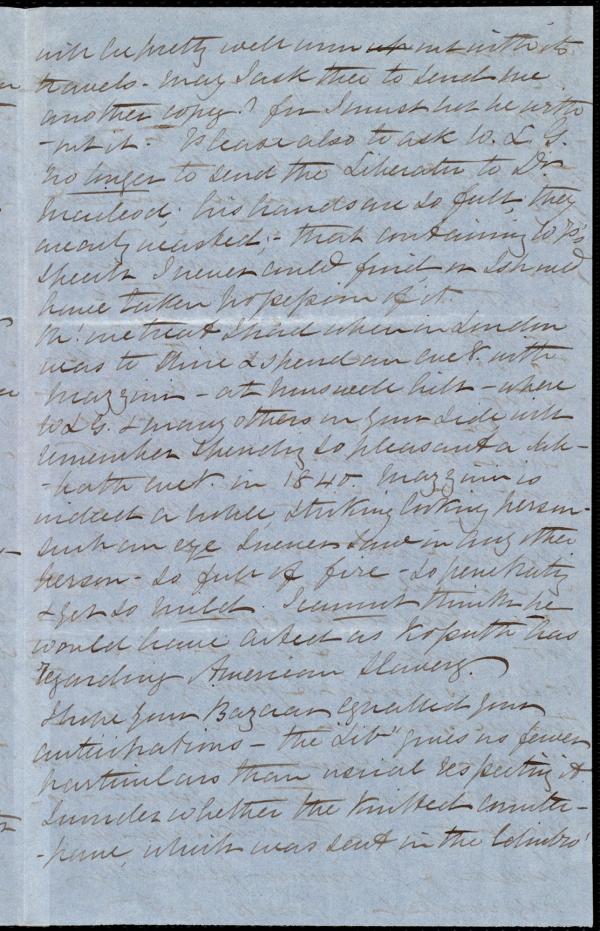 will be pretty well worn out with its
travels - may I ask thee to send me
another copy? for I must not be with
-out it. Please also to ask W. L. G.
no longer to send the Liberator to Dr.
Macleod; his hands are so full, they
are only wasted; - that containing W P's
speech I never could find or I should
have taken possession of it.
Oh! one treat I had when in London
was to dine & spend an eve.g with
Mazzini - at Muswell hill - where
W L G. & many others on your side will
remember spending so pleasant a Sab-
-bath eve.g in 1840. Mazzini is
indeed a noble, striking looking person -
such an eye I never saw in any other
person - so full of fire - so penetrating
& yet so mild. I cannot think he
would have acted as Kossuth has
regarding American Slavery.
I hope your Bazaar equalled your
anticipations - the Lib.r gives us fewer
particulars than usual respecting it
I wonder whether the knitted counter-
-pane, which was sent in the Edinbro'